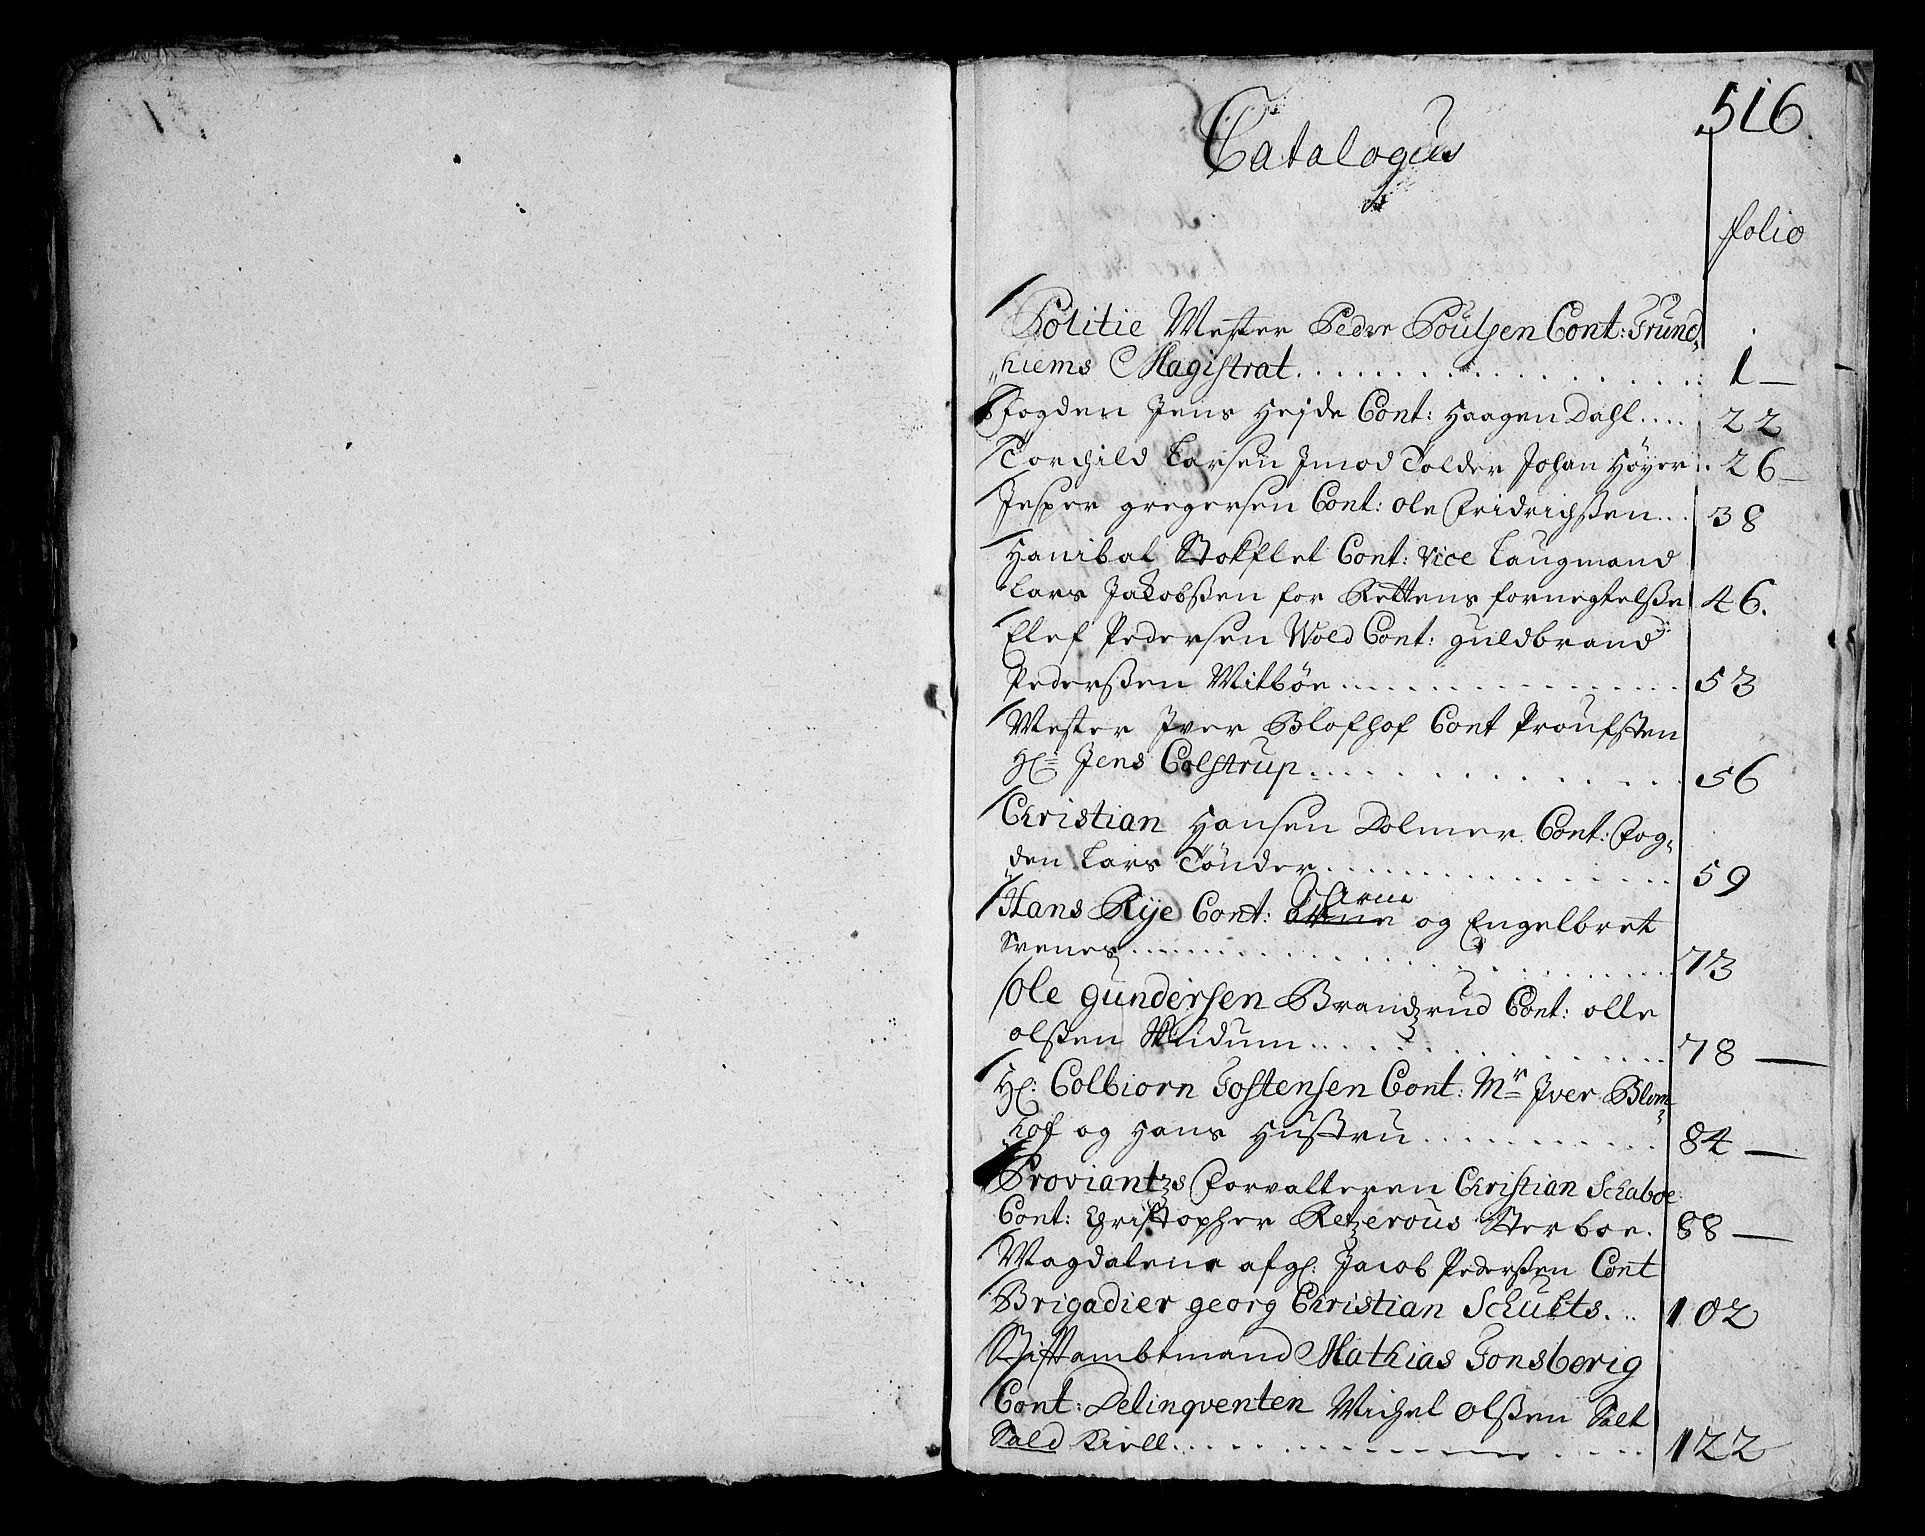 516
Catalogus
folio
Politie Mester Peder Poulsen Cont: Trund„
„hiems Magistrat . . . . . 1 —
Fogden Jens Hejde Cont: Haagen Dahl . . . . 22
Torchild Larsen Jmod Tolder Johan Höyer . . 26 —
Jesper gregersen Cont: Ole Fridrichßen . . . 38
Hanibal Stokflet Cont: vice Laugmand
Lars Jakobßen for Rettens fornegtelße 46.
Elef Pedersen Wold Cont: Guldbrand
Pederßen Mitböe . . . . . 53
Mester Jver Cont Proufsten
Hr= Jens Colstrup . . . . . 56
Christian Hansen Dolmer Cont: Fog„
„den Lars Tönder . . . . . 59
Hans Rije Cont: Arne og Engelbret
Svenes . . . . . 73
Ole Gundersen Brandzrud Cont: Olle
Olßen Skudum . . . . . 78 —
Hr: Colbiorn Tostensen Cont: Mr= Jver Blom„
hof og Hans Hustru . . . . . 84 —
Proviantzs Forvalteren Christian Schaboe
Cont: Christopher Retzerous Sterboe. 88 —
Magdalene afgl: Jacob Pederßen Cont
Brigadier georg Christian Schults . . . 102
Stiftambtmand Mathias Tonsberig
Cont: Delinqventen Michel Olßen Salt
Sald Kiell . . . . . 122